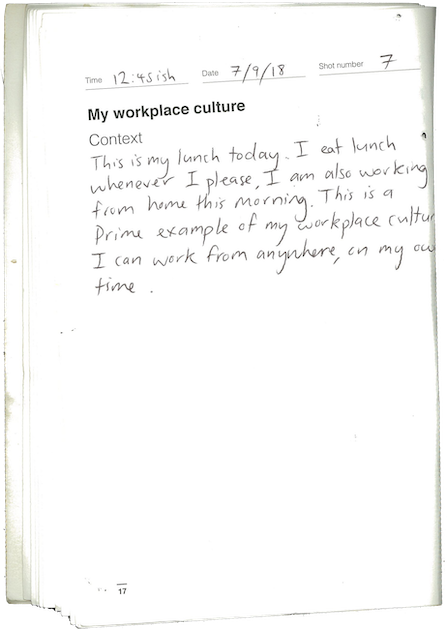 Time 12:45ish Date 7/9/18 Shot number 7
My workplace culture
Context
This is my lunch today. I eat lunch
whenever I please, I am also working
from home this morning. This is a
Prime example of my workplace cultur
I can work from anywhere, on my ow
time.
17